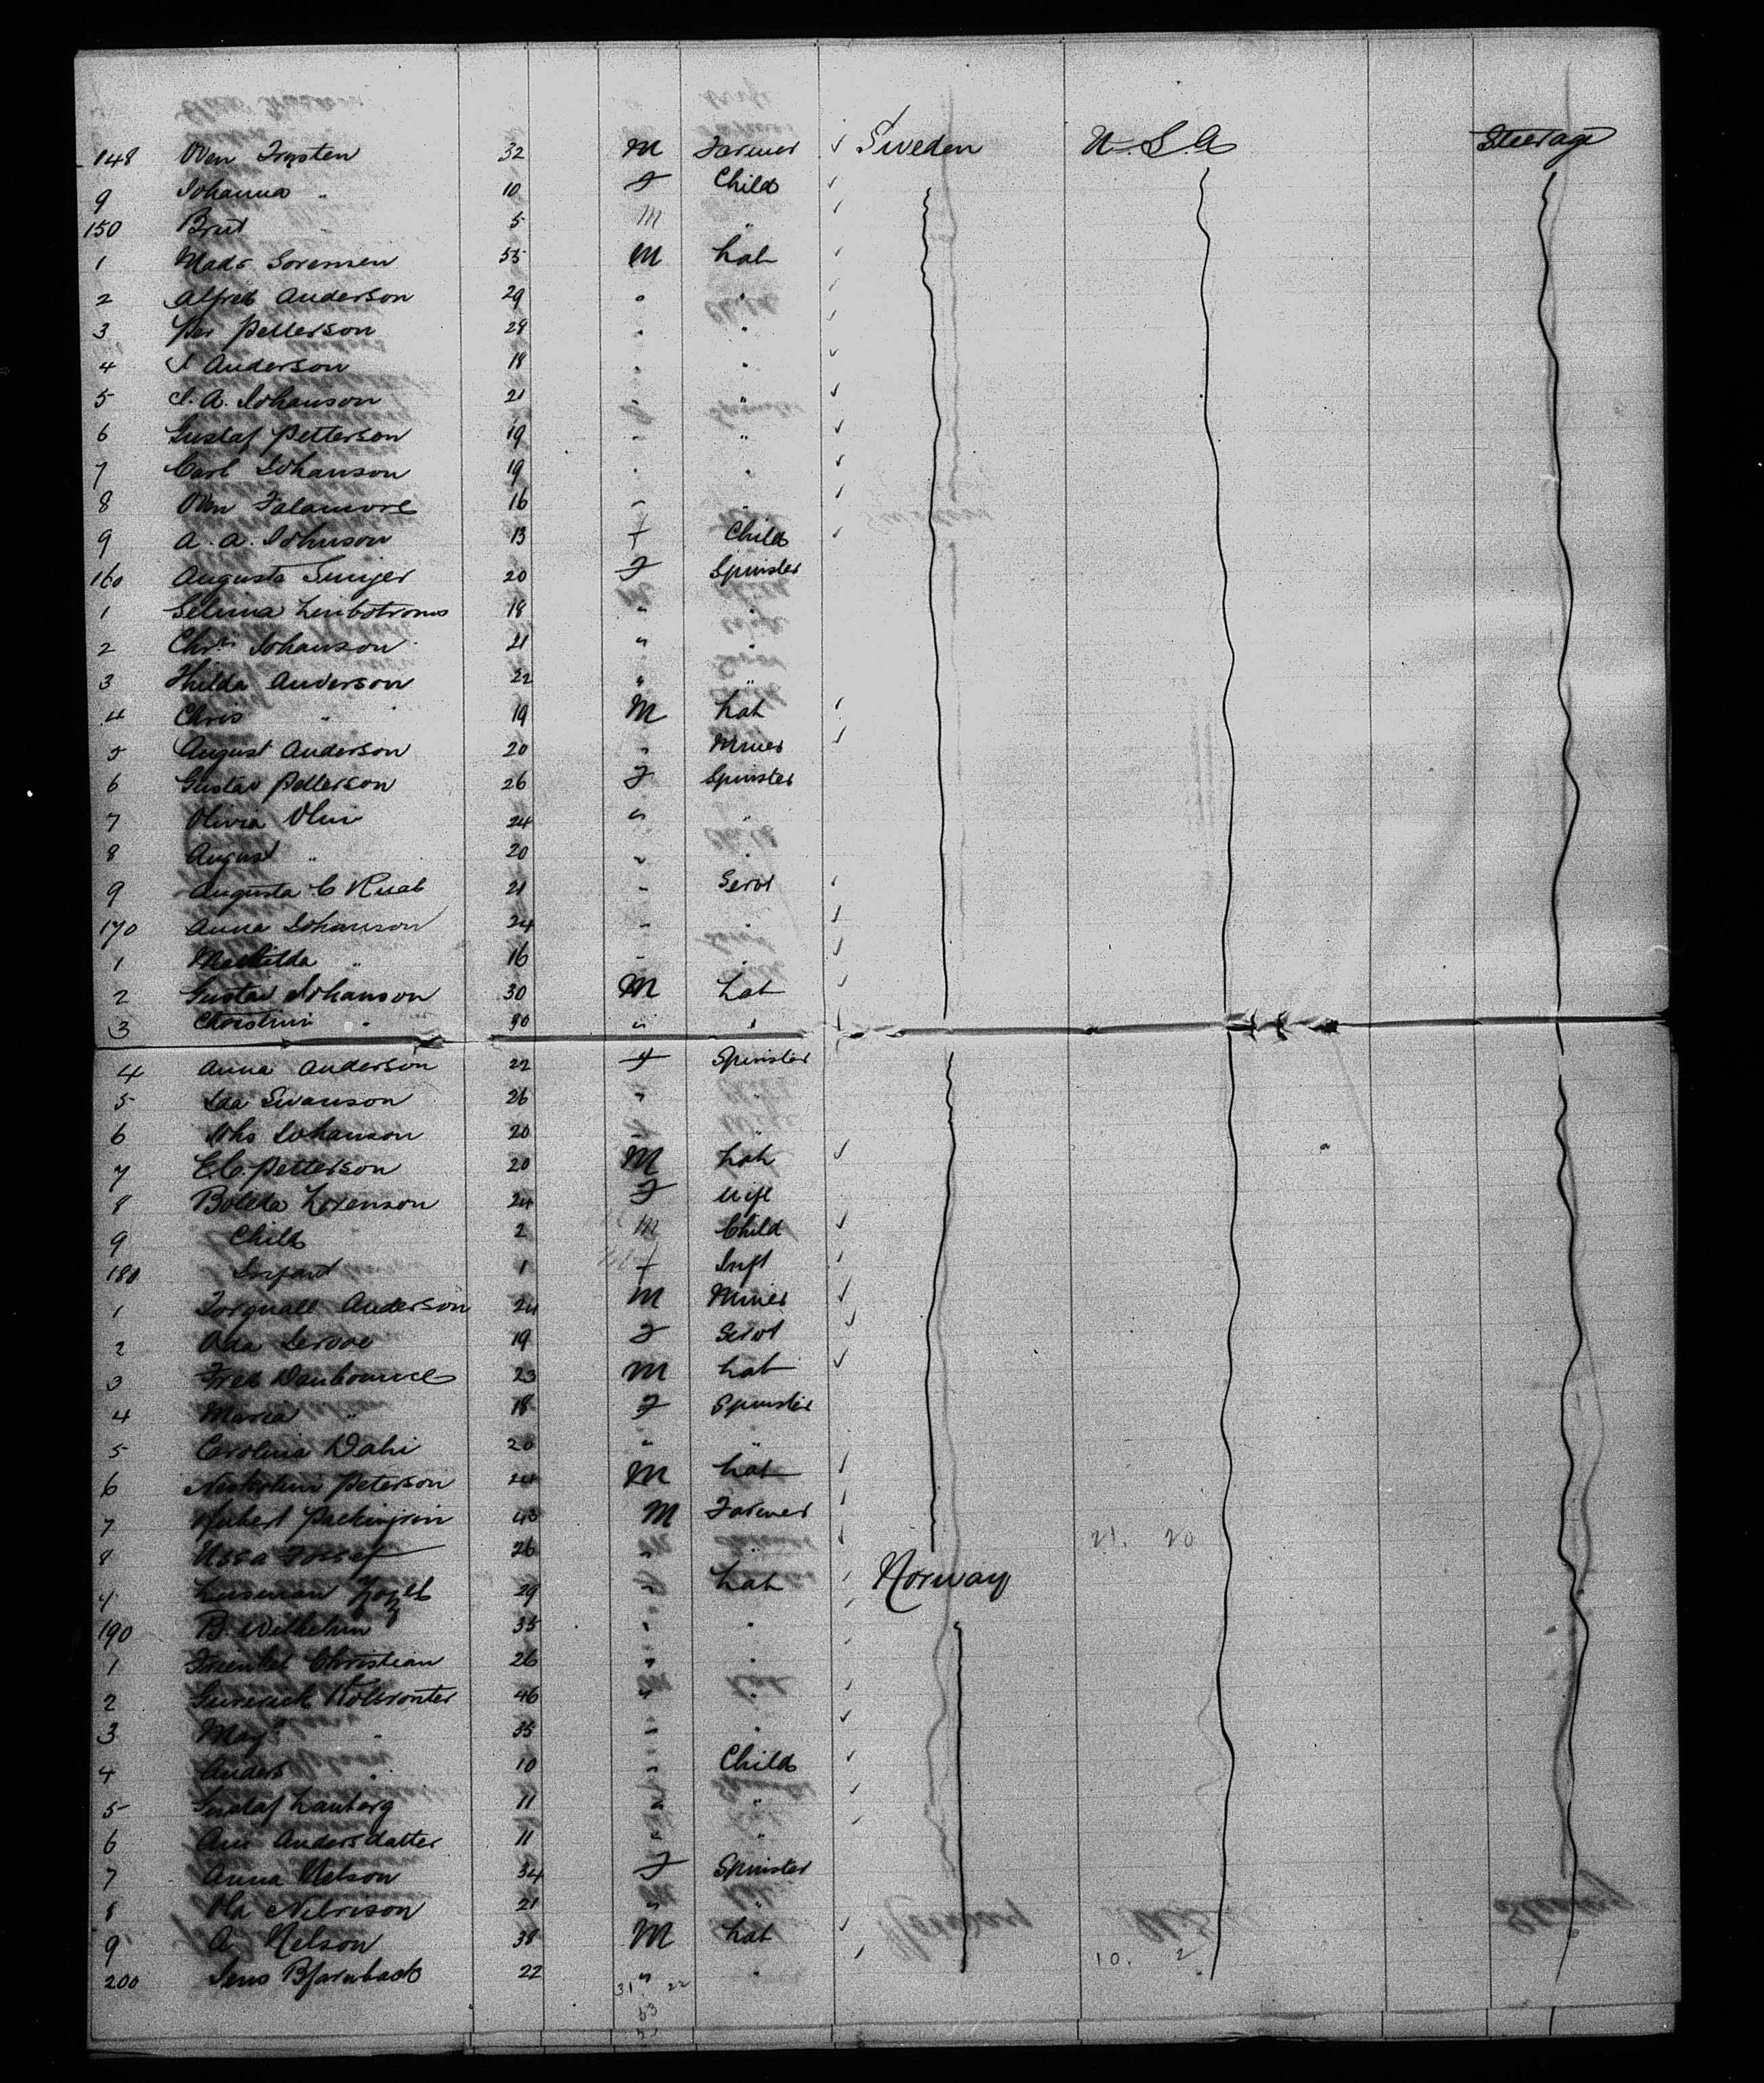 148 Oven Trysten 32 M Farmer ✓ Sweden U.S.A Steerage
9 Johanna " 10 F Child ✓
150 Brut " 5 M " ✓
1 Mads Sorensen 55 M Lab ✓
2 Alfred Anderson 29 " " ✓
3 Per Petterson 28 " " ✓
4 J Anderson 18 " " ✓
5 J. A. Johanson 21 " " ✓
6 Gustaf Petterson 19 " " ✓
7 Carl Johanson 19 " " ✓
8 Oven 16 " " ✓
9 A. A. Johnson 13 f Child ✓
160 Augusta 20 F Spinster
1 Selma 18 " "
2 Chrn Johanson 21 " "
3 Hilda Anderson 22 " "
4 Chris " 19 M Lab ✓
5 August Anderson 20 " Miner ✓
6 Gustav Petterson 26 F Spinster
7 Olivia Olin 24 " "
8 August " 20 " "
9 Augusta C 21 " Servt ✓
170 Anna Johanson 24 " " ✓
1 Mathilda " 16 " " ✓
2 Gustav Johanson 30 M Lab ✓
3 Christini " 30 " " ✓
4 Anna Anderson 22 f Spinster
5 Ida Swanson 26 " "
6 Johs Johanson 20 " "
7 E.C. Petterson 20 M Lab ✓
8 Boleta Lorenson 24 F Wife
9 Child 2 M Child ✓
180 Infant 1 f Inft ✓
1 Torquall Anderson 24 M Miner ✓
2 Ada 19 F Servt ✓
3 Fred 23 M Lab ✓
4 Maria " 18 F Spinster
5 Carolina Dahi 20 " "
6 Peterson 24 M Lab ✓
7 43 M Farmer ✓
8 26 " " ✓
9 29 " Lab ✓ Norway 21. 20
190 B. Wilhelm 35 " " ✓
1 Christian 26 " " ✓
2 46 " " ✓
3 May " 35 " " ✓
4 Anders " 10 " Child ✓
5 Gustaf Lanborg 11 " " ✓
6 Ane Andersdatter 11 " " ✓
7 Anna Nelson 34 F Spinster
8 Ola 21 " "
9 A Nelson 38 M Lab ✓
200 Jens 22 " " ✓ 10. 2
31 22
53